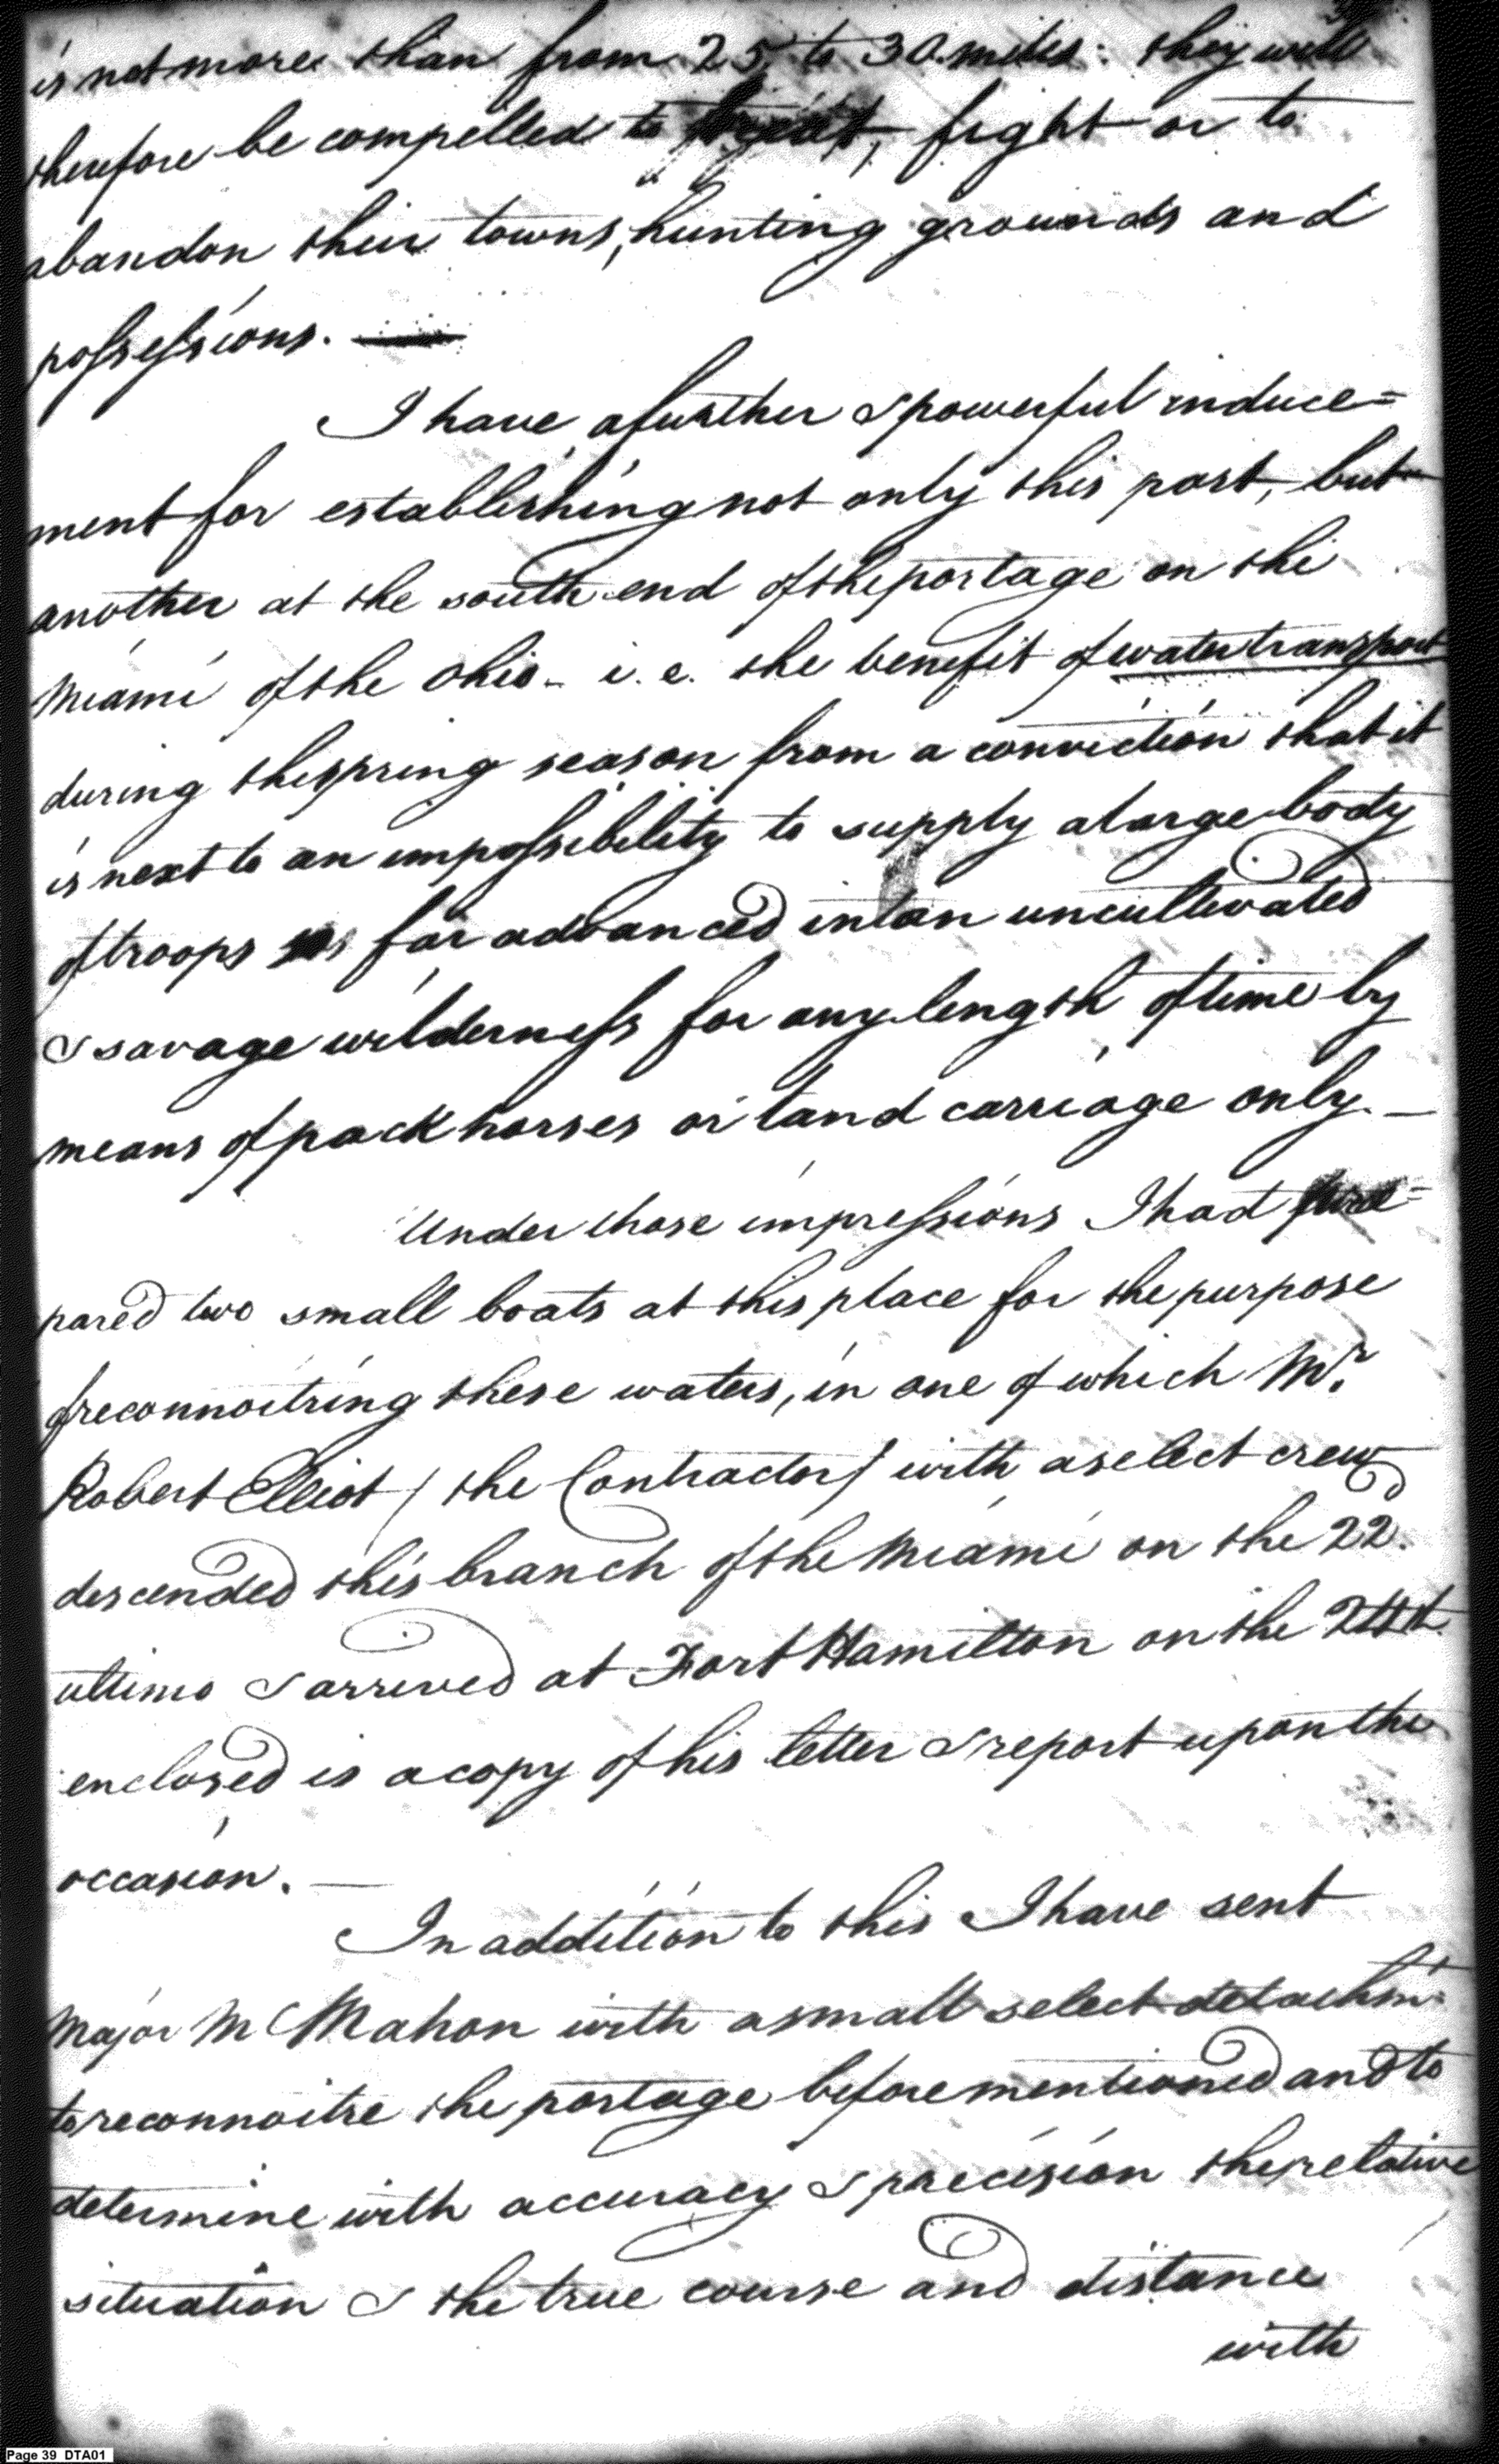 is not more than from 25 to 30 miles: they will
therefore be compelled to treat, fight or to
abandon their towns, hunting grounds and
possessions. —
I have a further & powerful induce=
ment for establishing not only this post, but
another at the south end of the portage on the
Miami of the Ohio – i.e. the benefit of water transport
during the spring season from a conviction that it
is next to an impossibility to supply a large body
of troops so far advanced into an uncultivated
& savage wilderness for any length of time by
means of pack horses or land carriage only. —
Under those impressions I had pre=
pared two small boats at this place for the purpose
of reconnoitring these waters, in one of which Mr.
Robert Elliot / the Contractor / with a select crew
descended this branch of the Miami on the 22.
ultimo & arrived at Fort Hamilton on the 24th
enclosed is a copy of his letter & report upon the
occasion. —
In addition to this I have sent
Major McMahon with a small select detachmt.
to reconnoitre the portage before mentioned and to
determine with accuracy & precision the relative
situation & the true course and distance
with
Page 39 DTA01